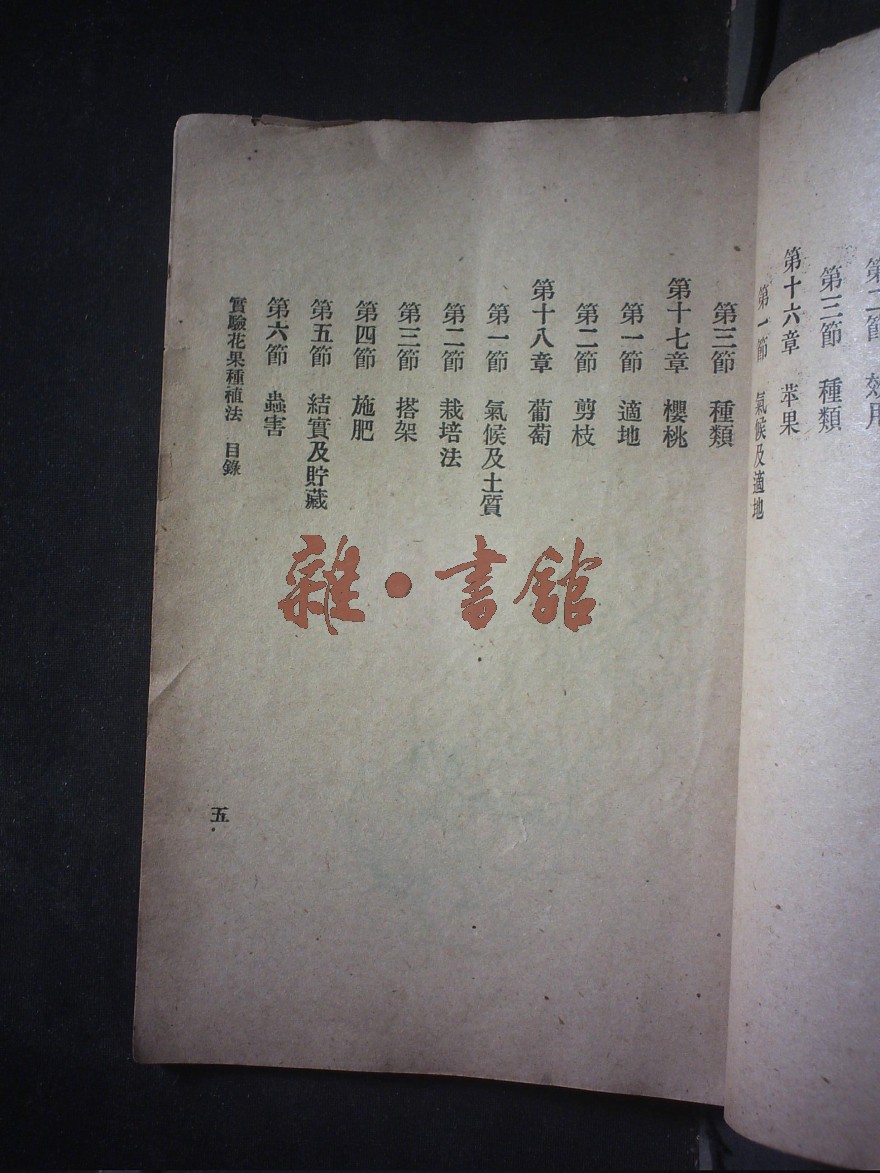 第二節　效用
第三節　種類
第十六章　苹果
第一節　氣候及適地
第三節　種類
第十七章　櫻桃
第一節　適地
第二節　剪枝
第十八章　葡萄
第一節　氣候及土質
第二節　栽培法
第三節　搭架
第四節　施肥
第五節　結實及貯藏
第六節　蟲害
實驗花果種植法　目錄
五
雜·書館